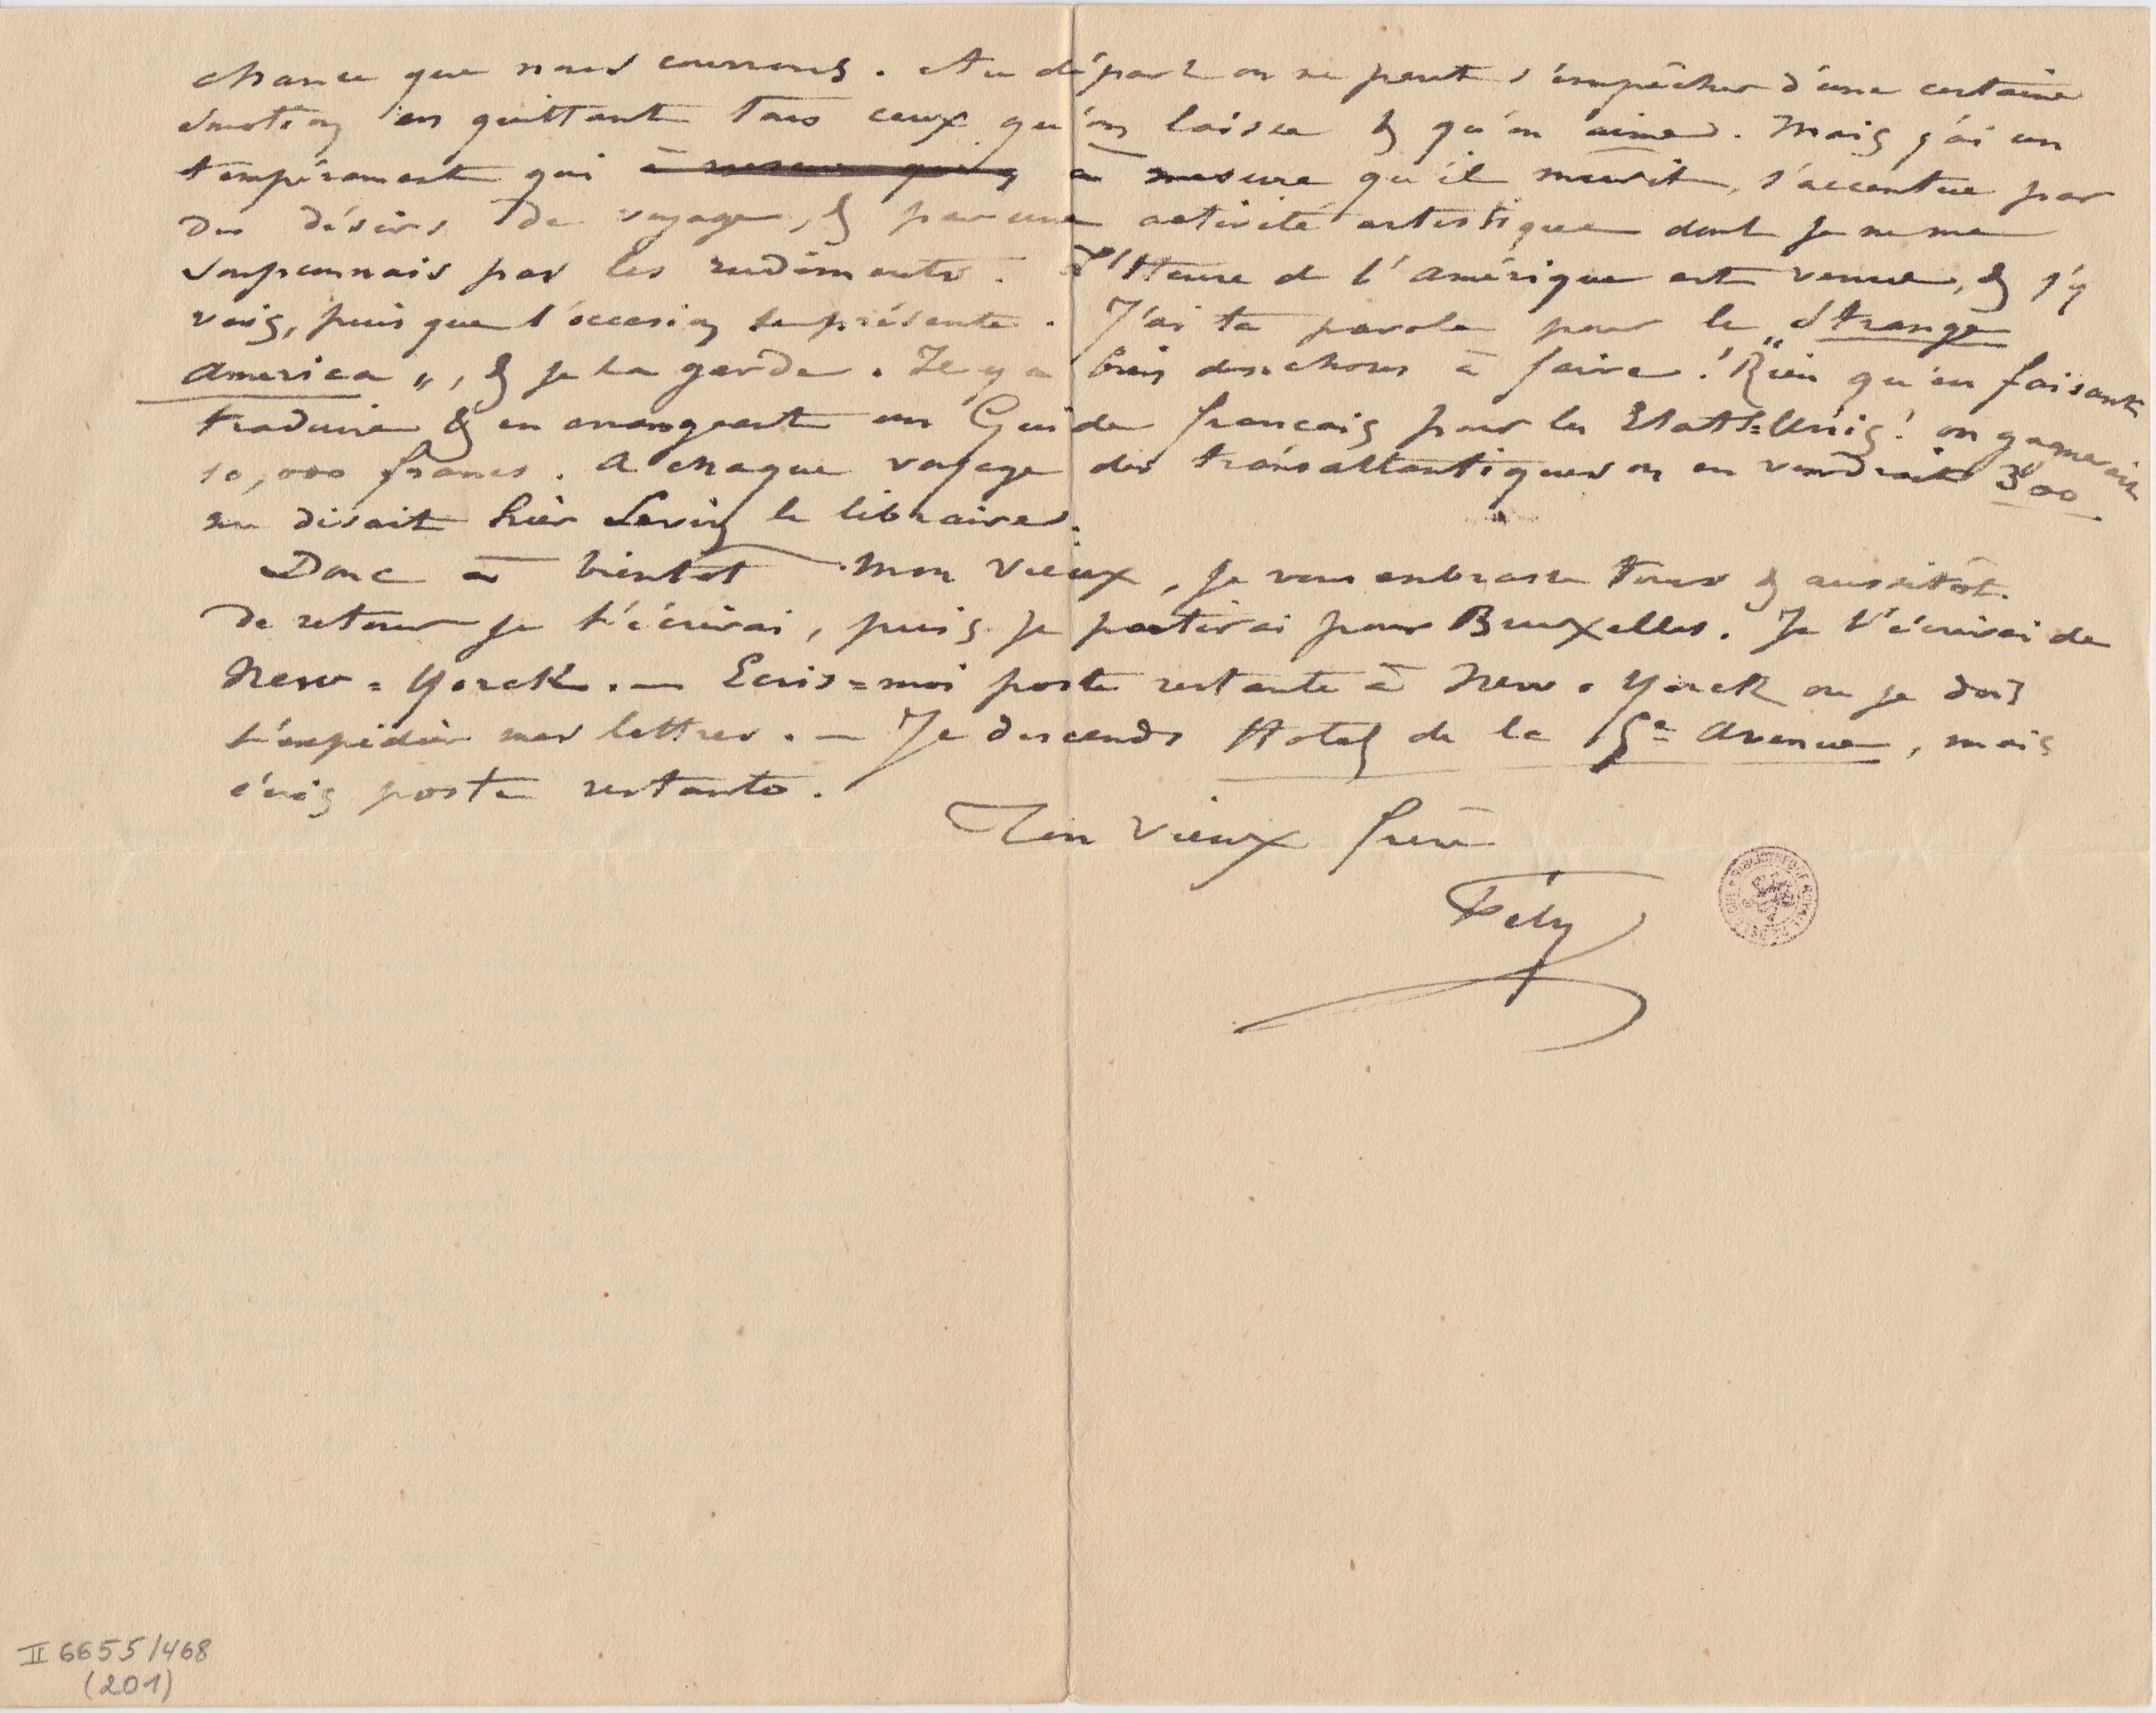 chance que nous courrons. Au départ on ne peut s'empêcher d'une certaine
émotion en quittant tous ceux qu'on laisse & qu'on aime. Mais j'ai un
tempérament qui à mesure qu'il à mesure qu'il murit, s'accentue par
des désirs de voyage, & par une activité artistique dont je ne me
soupçonnais pas les rudiments. L'Heure de l'Amérique est venue, & j'y
vais, puisque l'occasion se présente. J'ai ta parole pour le „Strange
America", & je la garde. Il y a bien des choses à faire! Rien qu'en faisant
traduire & en arrangeant un Guide français pour les Etats=Unis! on gagnerait
10,000 francs. A chaque voyage des transatlantiques on en vendrait 300
me disait hier Levy le libraire.
Donc à bientot mon vieux, je vous embrasse tous & aussitôt
de retour je t'écrirai, puis je partirai pour Bruxelles. Je t'écrirai de
New=Yorck. — Ecris=moi poste restante à New=Yorck ou je dois
t'expédier mes lettres. — Je descends Hotel de la 5e Avenue, mais
écris poste restante.
Ton vieux frère
Fély
II 6655/468
(201)